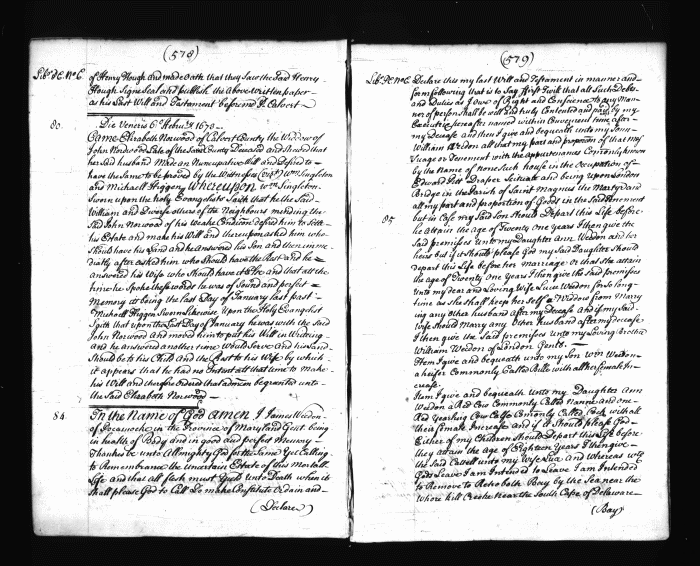 (578)
Lib.r J.C. No. C.
of Henry Hough and made Oath that they Saw the Said Henry
Hough Signe Seal and publish the Above written paper
as his Last Will and Testament before me P. Calvert
83.
Die Veneris 6.o 1673
Came Elizabeth Norwood of Calvert County the Widdow of
John Norwood Late of the Said County Deceased and Shewed that
her Said husband Made an Nuncupative Will and Desired to
have the Same to be proved by the Witnesses (vizt) Wm Singleton
and Michaell Higgen Whereupon Wm Singleton
Sworn upon the holy Evangelists Saith that he the Said
William and Diverse others of the Neighbours minding the
Said John Norwood of his Weake Condicon desired him to Settle
his Estate and make his Will and thereupon asked him who
Should have his Land and he answered his Son and then imme
diately after asked him who Should have the Rest and he
answered his Wife who Should have it Else and that all the
time he Spoke these words he was of Sound and perfect
Memory it being the Last Day of January last past
Michaell Higgen Sworn Likewise Upon the Holy Evangelist
Saith that upon the Last Day of January he was with the Said
John Norwood and moved him to put his Will in Writing
And he answered another time Would Serve And his Land
Should be to his Child and the Rest to his Wife by which
it appears that he had no Intent att that time to Make
his Will and therefore Ordered that admcon be granted unto
the Said Elizabeth Norwood
84
In the Name of God Amen I James Weedon
of Pocamoche in the Province of Maryland Gent being
in health of Body and in good and perfect Memory
Thankes be unto Allmighty God for the Same Yet Calling
to Remembrance the Uncertain Estate of this Mortall
Life and that all flesh must Yield unto Death when it
Shall please God to Call Do make Constitute Ordain and
(Declare)
(579)
Lib.r J.C. No. C.
Declare this my last Will and Testament in manner and
form following that is to Say first I will that all Such Debts
and Duties as I owe of Right and Conscience to any Man
ner of persons shall be well and truly Contented and paid by my
Executrix hereafter named within Convenient time after
my Decease and then I give and bequeath unto my Sonn
William Weedon all that my part and proportion of that my
Messuage or Tenement with the appurtenances Comonly known
by the Name of None Such house in the Occupation of
Edward Draper Scituate and being upon London
Bridge in the Parish of Saint Magnus the Martyr and
all my part and proportion of Goods in the Said Tenement
85.
but in Case my Said Son Should Depart this Life before
he attain the Age of Twenty One Years I then give the
Said premises Unto my Daughter Ann Weedon and her
heirs but if it Should please God my Said Daughter Should
depart this Life before her marriage or that She attain
the age of Twenty One Years I then give the Said premises
Unto my dear and Loving Wife Luce Weedon for So long
time as She Shall keep her Self a Widdow from Marry
ing any Other husband after my Decease and if my Said
Wife Should Marry any Other husband after my decease
I then give the Said premises unto my Loving Brother
William Weedon of London Gent.
Item I give and bequeath unto my Son Wm Weedon
a heifer Commonly Called Bille with all her female In
crease
Item I give and bequeath Unto my Daughter Ann
Weedon a Red Cow Commonly Called Nanne and one
Red Yearling Cow Calfe Comonly Called with all
their female Increase and if it Should please God
Either of my Children Should Depart this Life before
they attain the Age of Eighteen Years I then give
the Said Cattell unto my Wife Luce And Whereas wth
Gods Leave I am Intended to Leave I am Intended
to Remove to Rehoboth Bay by the Sea near the
Whore kill Creeke Near the South Cape of Delaware
(Bay)